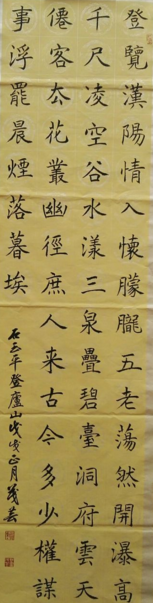 登覽漢陽情入懷朦朧五老蕩然開瀑高
千尺凌空谷水漾三泉疊碧臺洞府雲天
僊客太花叢幽徑庶人来古今多少權謀
事浮罷晨煙落暮埃
石三平登廬山戊戌正月茂芸